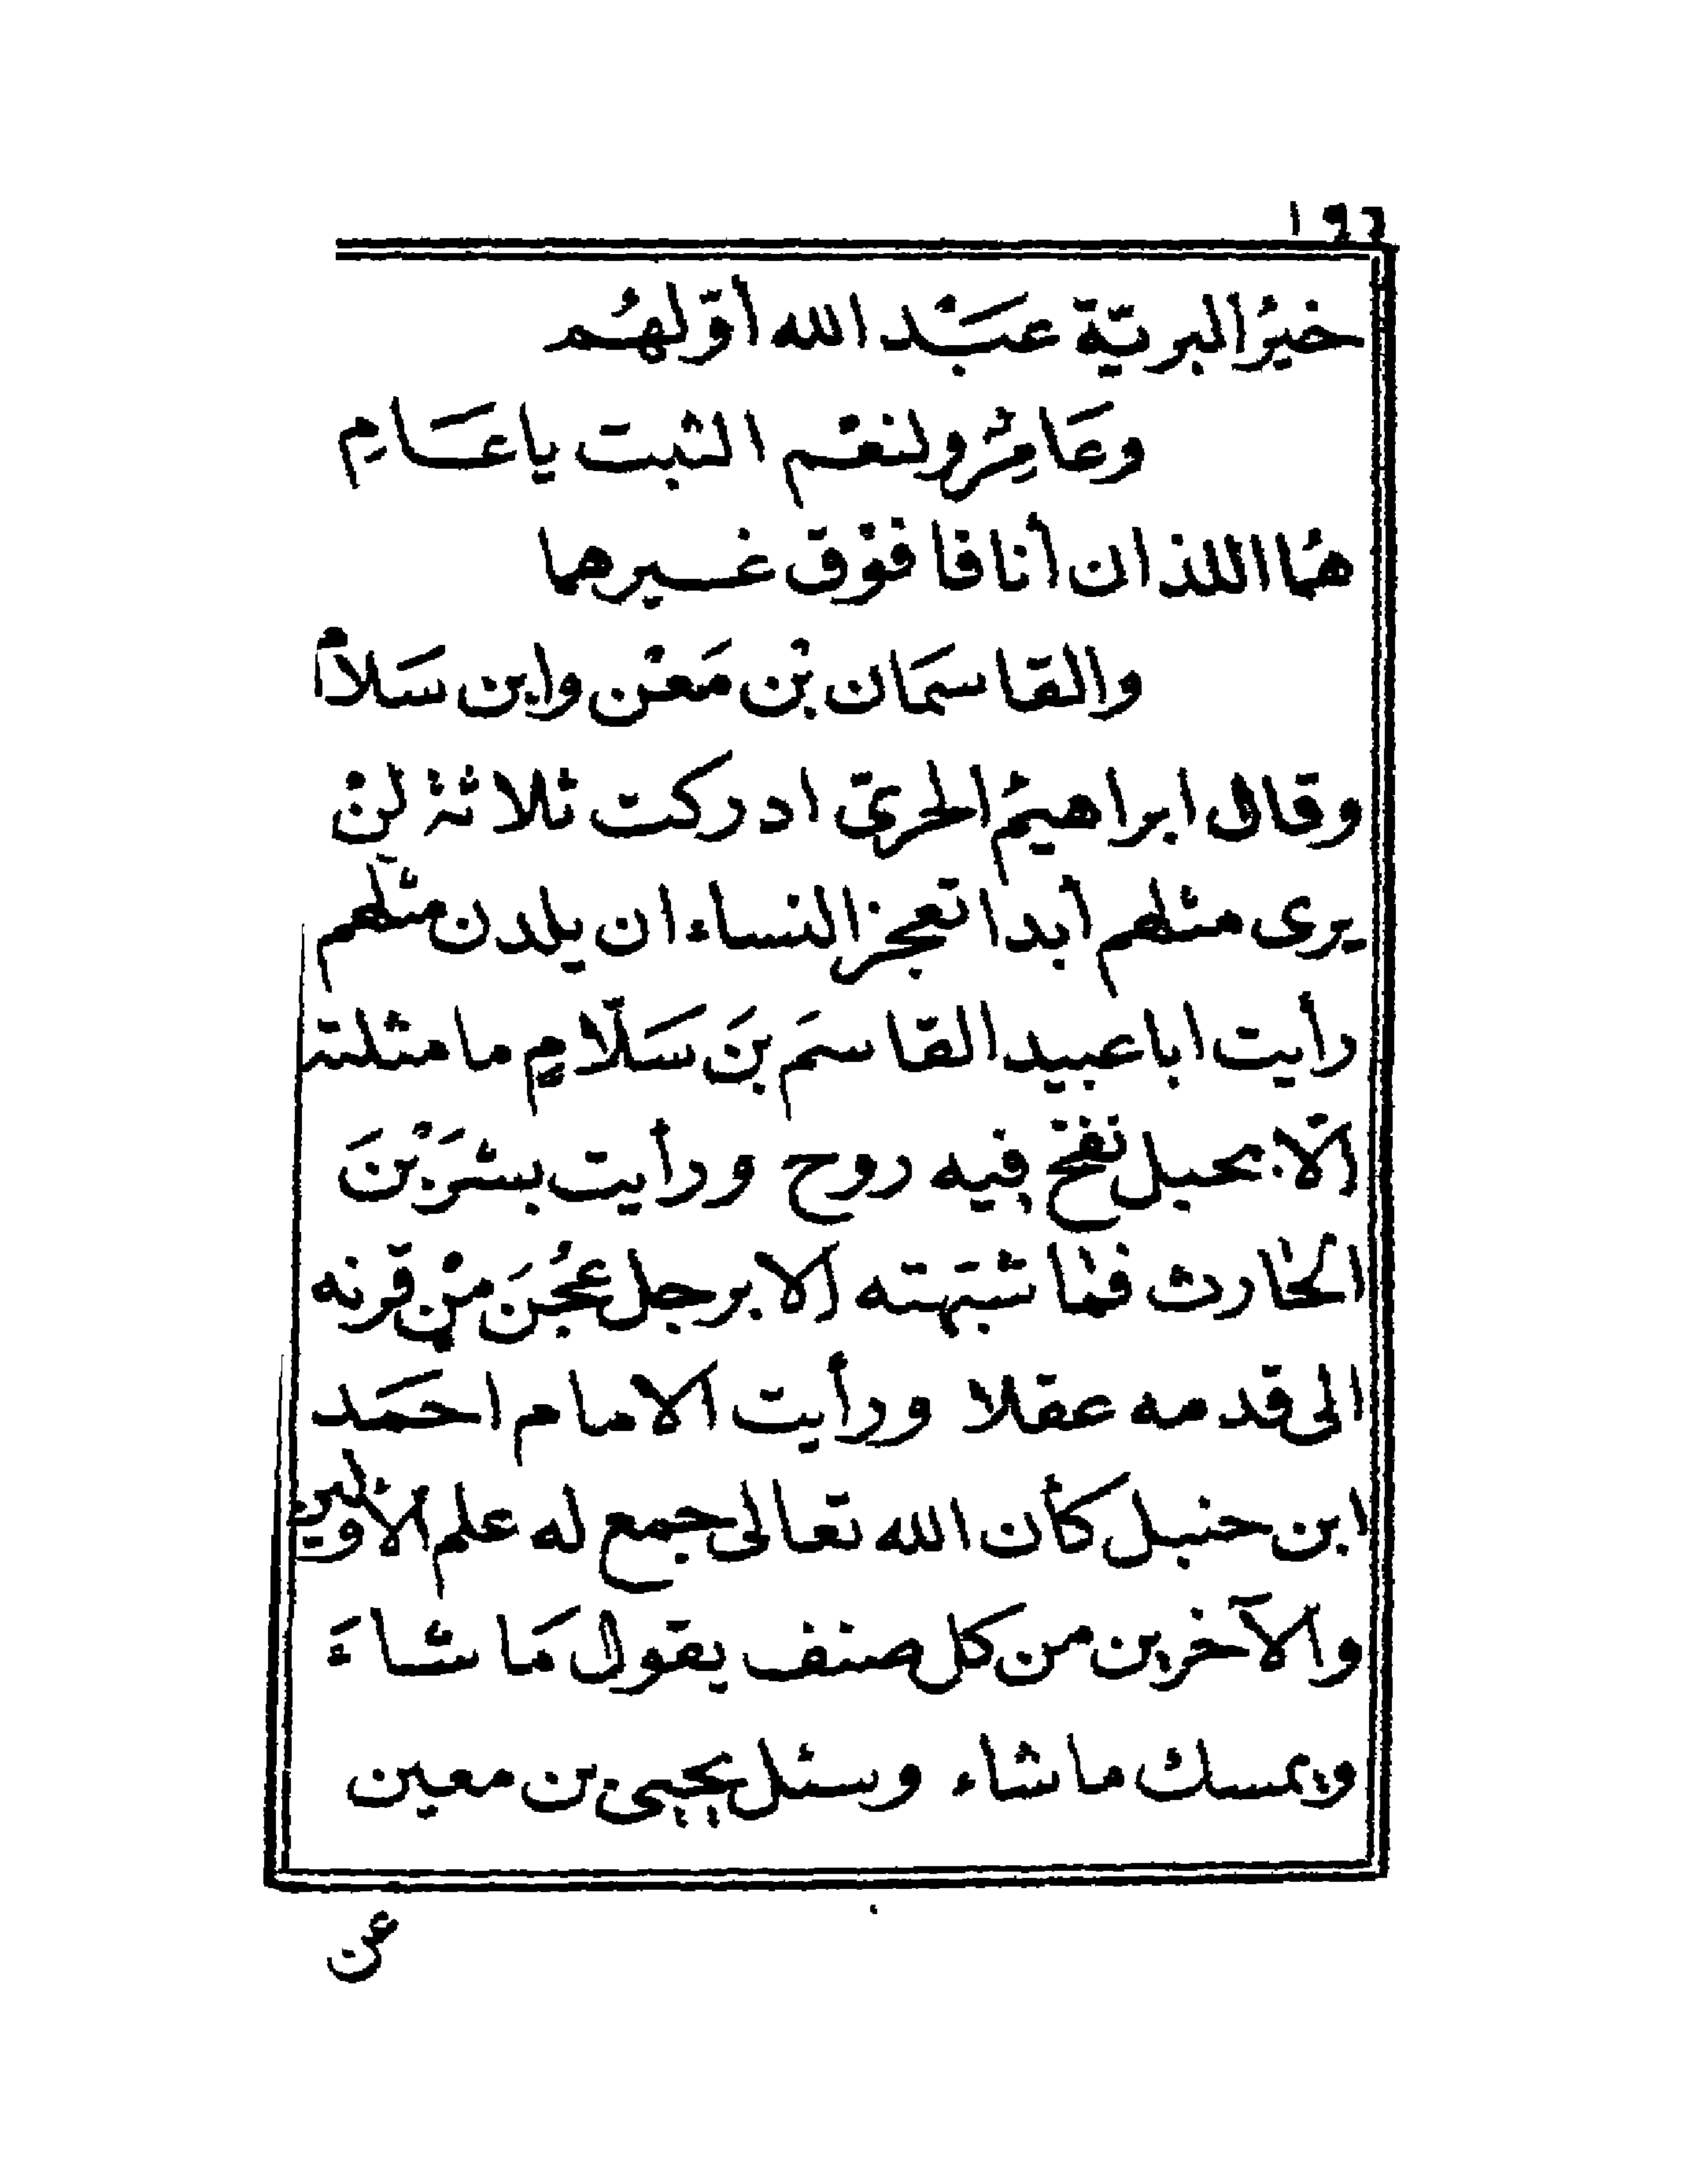 ١٩٦
خيرُ البريّة عبْد الله أوّلهُم
وعَامِرٌ ولنعْم الثبت يا عَامِ
هُما اللذان أنافا فوْق غيرهما
والقاسمَان بْن مَعْن وابن سَلامْ
وقال ابراهيمُ الحربىّ ادركت ثلاثة لنْ
يرى مثلهم أبدا تعجز النساء ان يلدن مثلهم
رأيت ابا عبيد القاسمَ بنَ سَلّامٍ ما مثلته
الّا بحبل نفخ فيه روح ورأيت بشرَ بْنَ
الحارث فما شبّهته الا برجل عُجُنَ منْ قرنه
الى قدمه عقلا ورأيت الامام احمَد
ابن حنبل كأن الله تعالى جمع له علم الأولين
والآخرين من كل صنف يقول مَا شاءَ
ويمسك ما شاء وسئل يحيى بن معين
عن